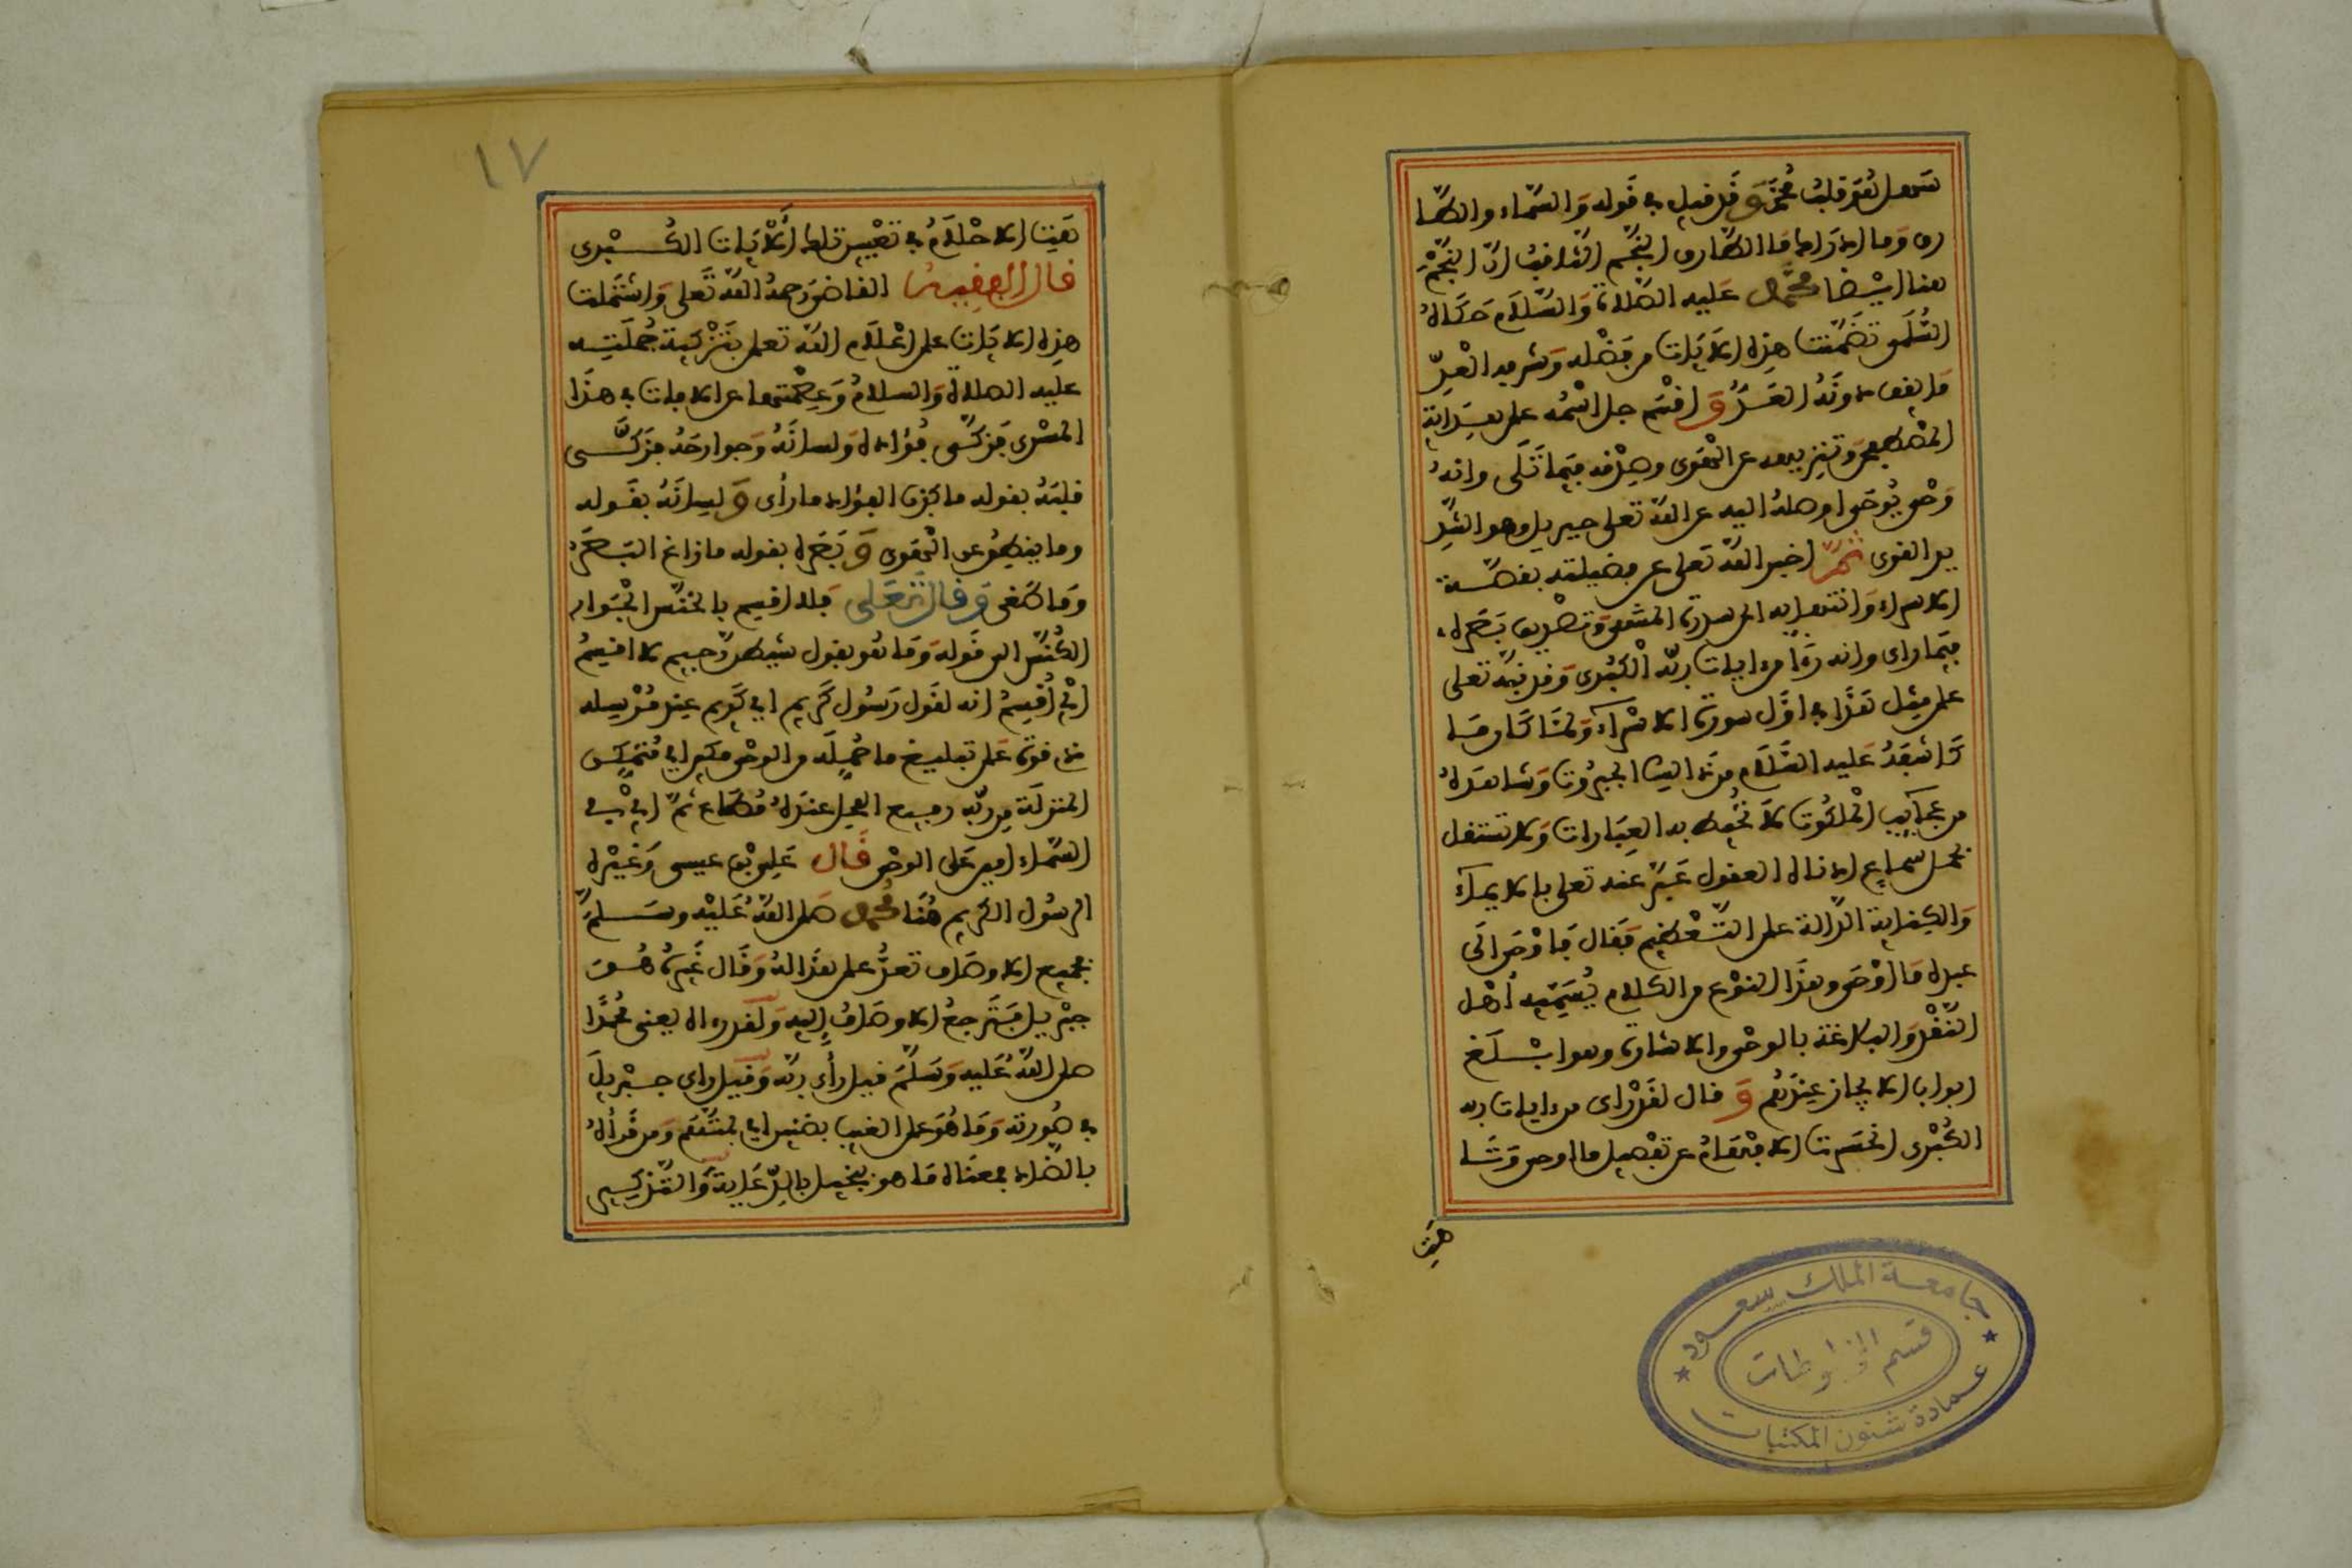 سهل هو قلب محمد و قد قيل في قوله والسماء والطا
رق وما ادراك ما الطارق النجم الثاقب ان النجم
هنا ايضا محمد عليه الصلاة والسلام حكاه
السلمى تضمنت هذه الايات من فضله وشرفه العد
ما يقف دونه العد و اقسم جل اسمه على هداية
المصطفى وتنزيهه عن الهوى وصدقه فيما تلى وانه
وحى يوحى اوصله اليه عن الله تعلى جبريل وهو الشد
يد القوى ثم اخبر الله تعلى عن فضيلته بقصة
الاسراء وانتهايه الى سدرة المنتهى وتصديق بصره
فيما راى وانه رءا من ايات ربه الكبرى وقد نبه تعلى
على مثل هذا في اول سورة الاسراء ولما كان ما
كاشفه عليه السلام من ذالك الجبروت وشاهده
من عجايب الملكوت لا تحيط به العبارات ولا تستقل
بحمل سماع ادناه العقول عبر عنه تعلى بالايماء
والكناية الدالة على التعظيم فقال فاوحى الى
عبده ما اوحى وهذا النوع من الكلام يسميه اهل
النقد والبلاغة بالوحى والاشارة وهو ابلغ
ابواب الايجاز عندهم و قال لقد راى من ايات ربه
الكبرى انحسرت الافهام عن تفصيل ما اوحى وتا
هت
جامعة الملك سعود
قسم المخطوطات
عمادة شئون المكتبات
١٧
هت الاحلام في تعيين تلك الايات الكبرى
قال الفقيه القاضى رحمه الله تعلى واشتملت
هذه الايات على اعلام الله تعلى بتزكية جملته
عليه الصلاة والسلام وعصمتها عن الافات في هذا
المسرى فزكى فؤاده ولسانه وجوارحه فزكى
قلبه بقوله ما كذب الفؤاد ما رأى و لسانه بقوله
وما ينطق عن الهوى و بصره بقوله ما زاغ البصر
وما طغى و قال تعلى فلا اقسم بالخنس الجوار
الكنس الى قوله وما هو بقول شيطن رجيم لا اقسم
اي اقسم انه لقول رسول كريم اي كريم عند مرسله
ذى قوة على تبليغ ما حمله من الوحى مكين اي متمكن
المنزلة من ربه رفيع المحل عنده مطاع ثم اي في
السماء امين على الوحى قال على بن عيسى وغيره
الرسول الكريم هنا محمد صلى الله عليه وسلم
فجميع الاوصاف تعد على هذا له وقال غيره هو
جبريل فترجع الاوصاف اليه ولقد رءاه يعنى محمدا
صلى الله عليه وسلم قيل رأى ربه وقيل راى جبريل
في صورته وما هو على الغيب بضنين اي بمتهم ومن قرأه
بالضاد بمعناه ما هو ببخيل بالدعاية والتذكير